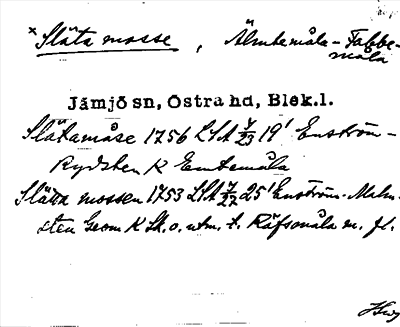 × Släta mosse, Älmtemåla-Fabbe-
måla
Jämjö sn, Östra hd, Blek.l.
Slätamåse 1756 LSA 7/23 19' Enström-
Rydsten K Emtemåla
Släta mossen 1753 LSA 7/22 25' Enström-Malm-
sten Geom K Sk. o. utm. t. Räfsmåla m. fl.